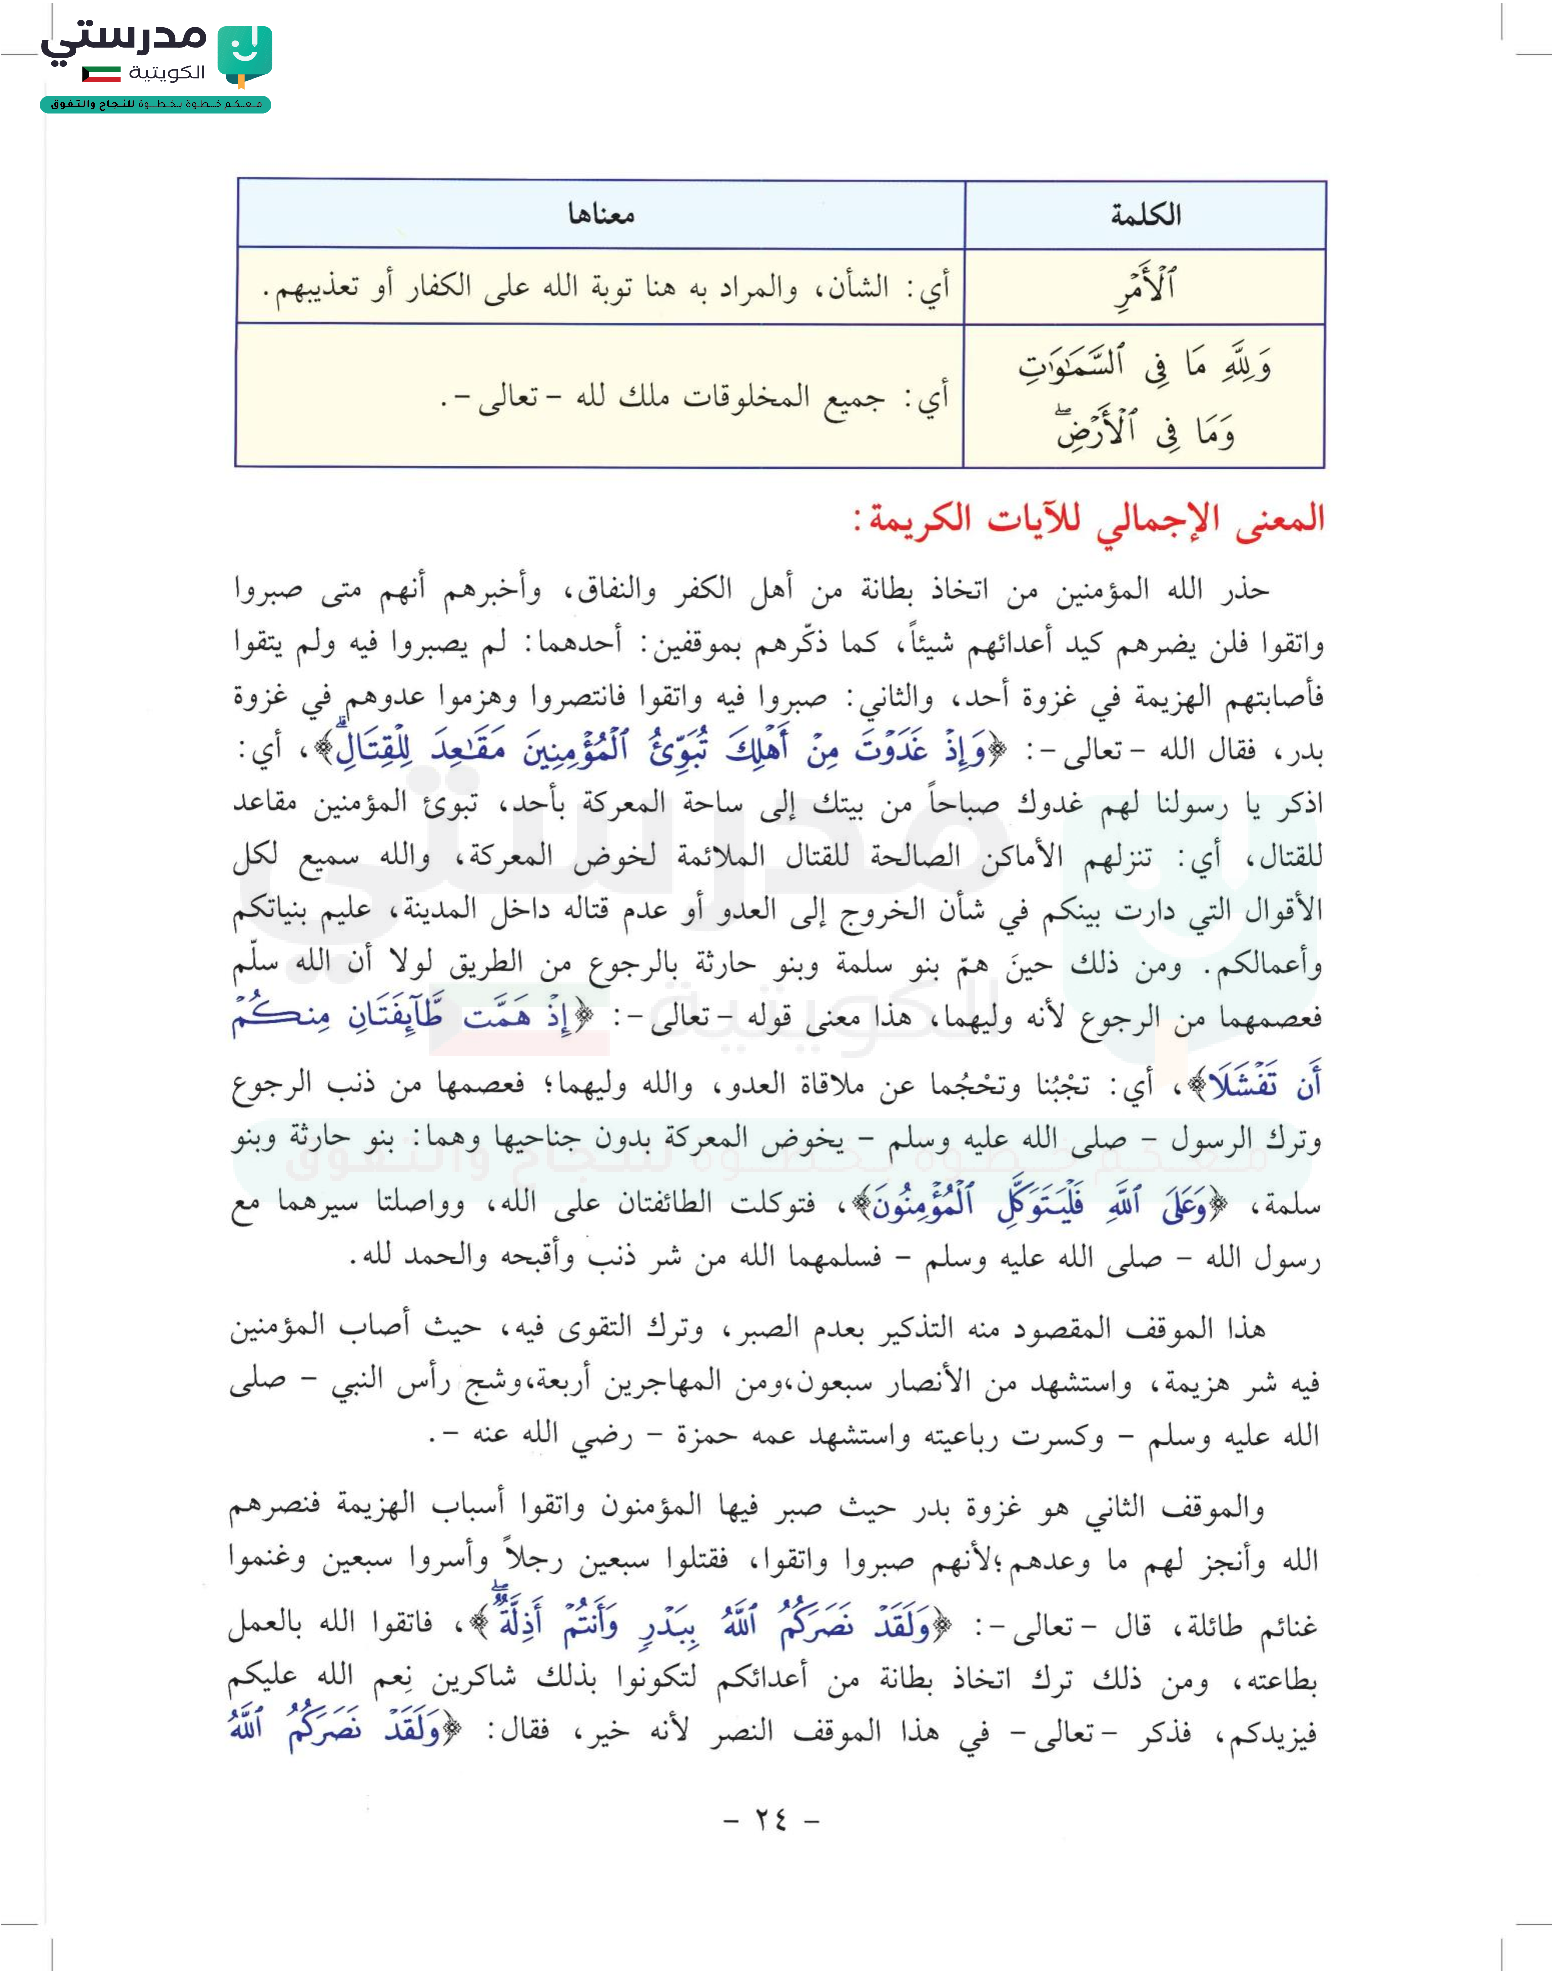 مدرستي
الكويتية
معكم خطوة بخطوة للنجاح والتفوق
الكلمة معناها
ٱلْأَمْرِ أي: الشأن، والمراد به هنا توبة الله على الكفار أو تعذيبهم.
وَلِلَّهِ مَا فِى ٱلسَّمَٰوَٰتِ
وَمَا فِى ٱلْأَرْضِۖ
أي: جميع المخلوقات ملك لله - تعالى -.
المعنى الإجمالي للآيات الكريمة:
حذر الله المؤمنين من اتخاذ بطانة من أهل الكفر والنفاق، وأخبرهم أنهم متى صبروا
واتقوا فلن يضرهم كيد أعدائهم شيئاً، كما ذكّرهم بموقفين: أحدهما: لم يصبروا فيه ولم يتقوا
فأصابتهم الهزيمة في غزوة أحد، والثاني: صبروا فيه واتقوا فانتصروا وهزموا عدوهم في غزوة
بدر، فقال الله - تعالى -: ﴿وَإِذْ غَدَوْتَ مِنْ أَهْلِكَ تُبَوِّئُ ٱلْمُؤْمِنِينَ مَقَٰعِدَ لِلْقِتَالِۗ﴾، أي:
اذكر يا رسولنا لهم غدوك صباحاً من بيتك إلى ساحة المعركة بأحد، تبوئ المؤمنين مقاعد
للقتال، أي: تنزلهم الأماكن الصالحة للقتال الملائمة لخوض المعركة، والله سميع لكل
الأقوال التي دارت بينكم في شأن الخروج إلى العدو أو عدم قتاله داخل المدينة، عليم بنياتكم
وأعمالكم. ومن ذلك حينَ همّ بنو سلمة وبنو حارثة بالرجوع من الطريق لولا أن الله سلّم
فعصمهما من الرجوع لأنه وليهما، هذا معنى قوله - تعالى -: ﴿إِذْ هَمَّت طَّآئِفَتَانِ مِنكُمْ
أَن تَفْشَلَا﴾، أي: تجْبُنا وتحْجُما عن ملاقاة العدو، والله وليهما؛ فعصمها من ذنب الرجوع
وترك الرسول - صلى الله عليه وسلم - يخوض المعركة بدون جناحيها وهما: بنو حارثة وبنو
سلمة، ﴿وَعَلَى ٱللَّهِ فَلْيَتَوَكَّلِ ٱلْمُؤْمِنُونَ﴾، فتوكلت الطائفتان على الله، وواصلتا سيرهما مع
رسول الله - صلى الله عليه وسلم - فسلمهما الله من شر ذنب وأقبحه والحمد لله.
هذا الموقف المقصود منه التذكير بعدم الصبر، وترك التقوى فيه، حيث أصاب المؤمنين
فيه شر هزيمة، واستشهد من الأنصار سبعون،ومن المهاجرين أربعة،وشج رأس النبي - صلى
الله عليه وسلم - وكسرت رباعيته واستشهد عمه حمزة - رضي الله عنه -.
والموقف الثاني هو غزوة بدر حيث صبر فيها المؤمنون واتقوا أسباب الهزيمة فنصرهم
الله وأنجز لهم ما وعدهم؛لأنهم صبروا واتقوا، فقتلوا سبعين رجلاً وأسروا سبعين وغنموا
غنائم طائلة، قال - تعالى -: ﴿وَلَقَدْ نَصَرَكُمُ ٱللَّهُ بِبَدْرٍ وَأَنتُمْ أَذِلَّةٌۖ﴾، فاتقوا الله بالعمل
بطاعته، ومن ذلك ترك اتخاذ بطانة من أعدائكم لتكونوا بذلك شاكرين نِعم الله عليكم
فيزيدكم، فذكر - تعالى - في هذا الموقف النصر لأنه خير، فقال: ﴿وَلَقَدْ نَصَرَكُمُ ٱللَّهُ
- ٢٤ -